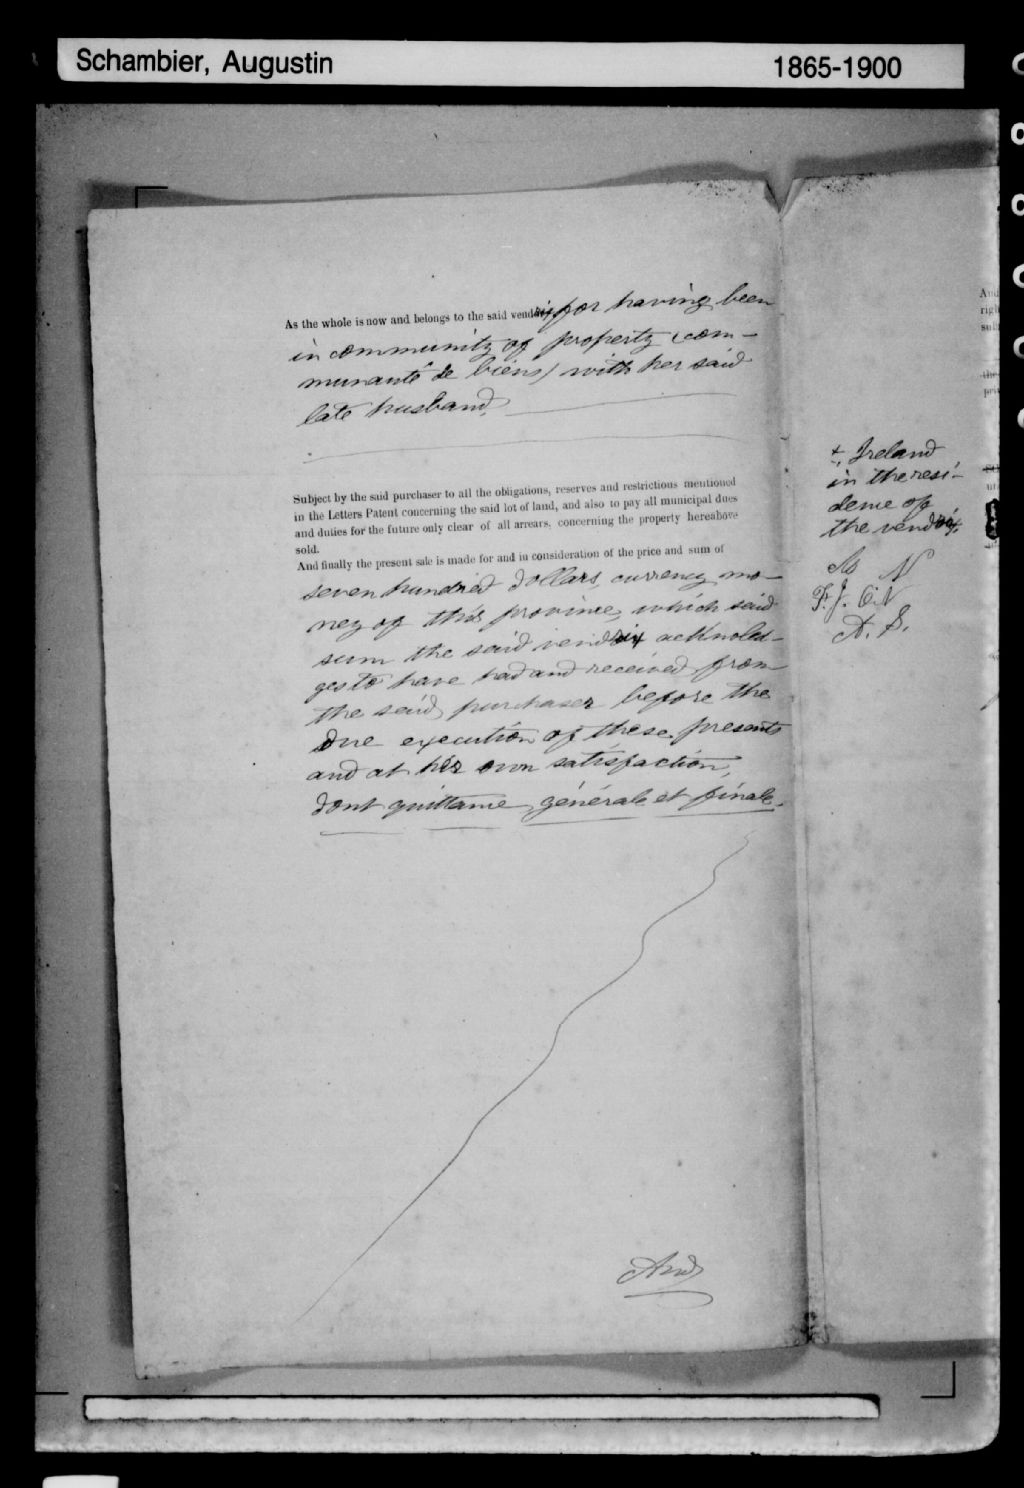 Schambier, Augustin 1865-1900
As the whole is now and belongs to the said vendrix for having been
in community of property (com-
munauté de biens) with her said
late husband,
Subject by the said purchaser to all the obligations, reserves and restrictions mentioned
in the Letters Patent concerning the said lot of land, and also to pay all municipal dues
and duties for the future only clear of all arrears, concerning the property hereabove
sold.
And finally the present sale is made for and in consideration of the price and sum of
seven hundred dollars, currency mo-
ney of this province, which said
sum the said vendrix acknoled-
ges to have had and received from
the said purchaser before the
due execution of these presents
and at her own satisfaction,
dont quittance générale et finale.
And
+, Ireland
in the resi-
dence of
the vendrix.
N
F. J.
A. S.